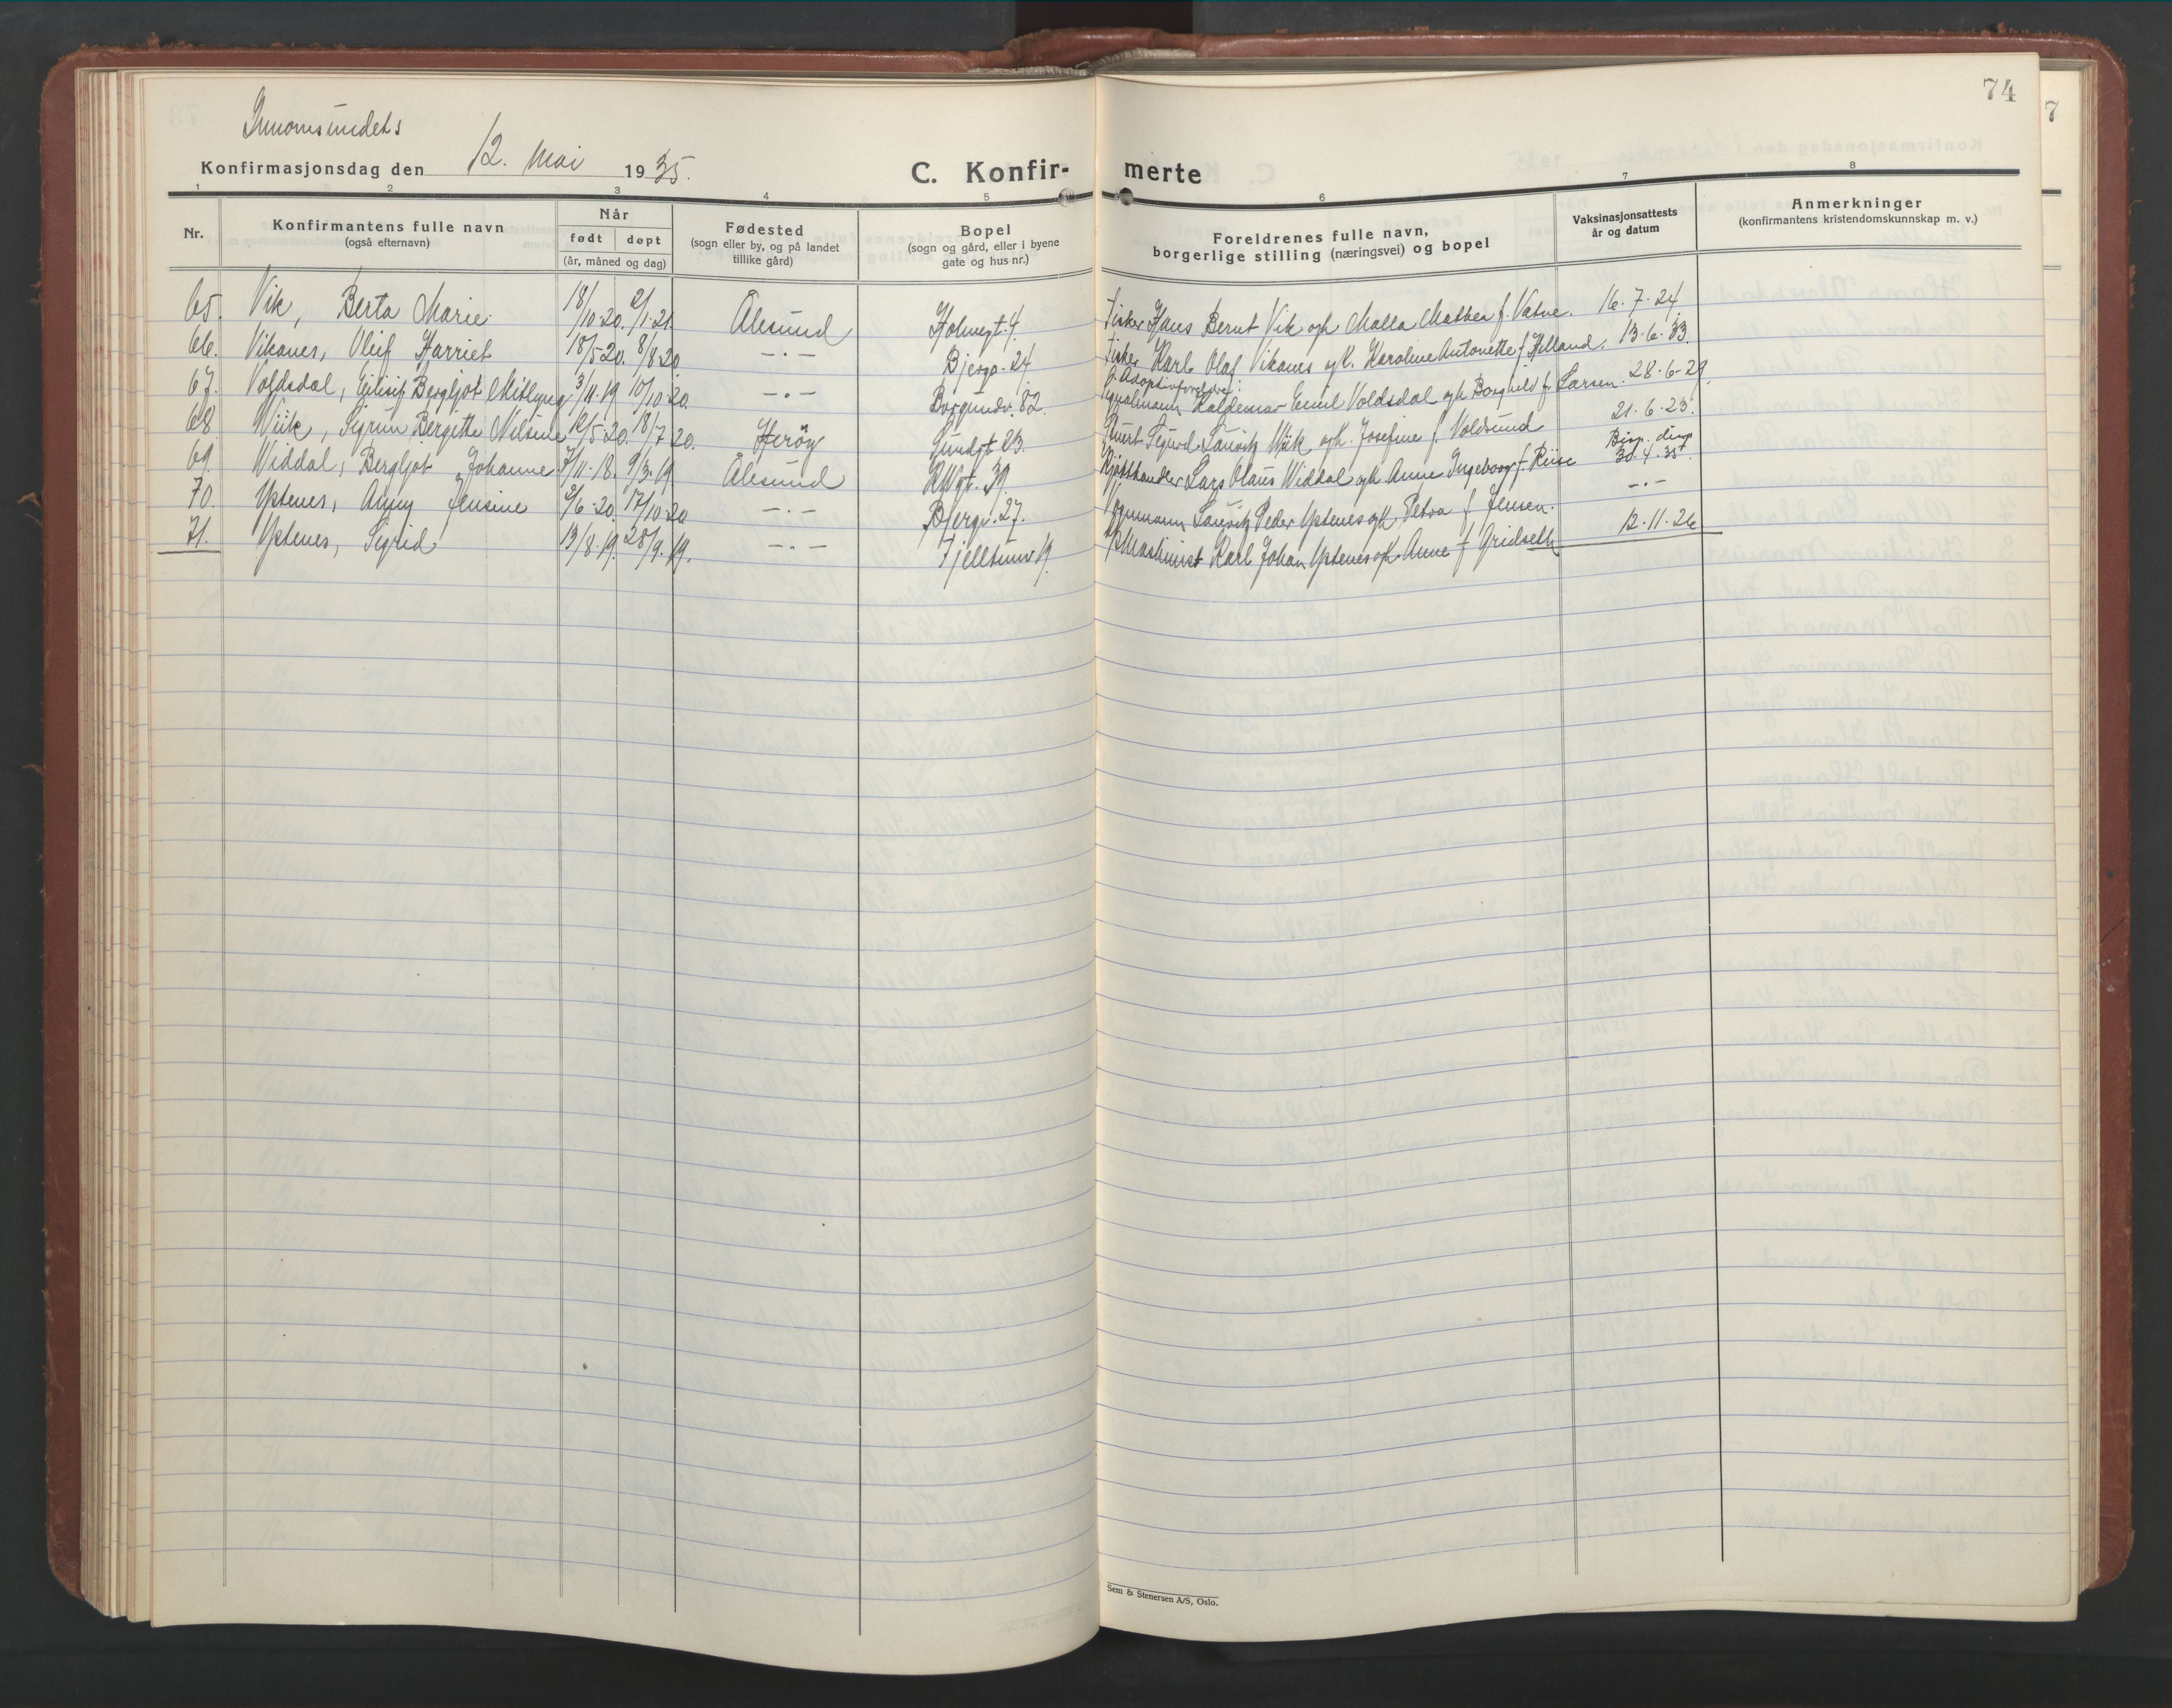 74
Innomsundets
Konfirmasjonsdag den 12. mai 1935.
C. Konfir- merte
1 2 3 4 5 6 7 8
Nr.
Konfirmantens fulle navn
(også efternavn)
Når
født døpt
(år, måned og dag)
Fødested
(sogn eller by, og på landet
tillike gård)
Bopel
(sogn og gård, eller i byene
gate og hus nr.)
Foreldrenes fulle navn,
borgerlige stilling (næringsvei) og bopel
Vaksinasjonsattests
år og datum
Anmerkninger
(konfirmantens kristendomskunnskap m. v.)
65. Vik, Berta Marie 18/10-20. 2/1-21 Ålesund Holmegt. 4. Fisker Hans Bernt Vik og h. Malla Mathea f. Vatne. 16-7-24
66. Vikanes, Oleif Harriet 18/5-20. 8/8-20 -"- Bjergv. 24 Fisker Karl Olaf Vikanes og h. Karoline Antonette f. Helland. 13-6-33.
67. Voldsdal, Eilisif Bergljot 3/11-19 10/10-20. -"- Borgundv. 82. Adoptivforeldre:
Valdemar Emil Voldsdal og h. Borghild f. Larsen. 28-6-29.
68 Wiik, Sigrun Bergitte Nilsine 12/5-20. 18/7-20. Herøy Sundgt. 23. Sigurd Lauritz Wiik og h. Josefine f. Voldsund 21-6-23.
69. Widdal, Bergljot Johanne 7/11-18. 9/3-19 Ålesund 39. Kjøtthandler Lars Olaus Widdal og h. Anne Ingeborg f. Riise Bisp. disp
30.4.35.
70. Ystenes, Anny Jensine 2/6-20. 17/10-20 -"- Bjergv. 27. Lauritz Peder Ystenes og h. Petra f. Jensen. -"-
71. Ystenes, Sigrid 13/8-19. 28/9-19. -"- Fjelltunv. 19. Maskinist Karl Johan Ystenes og h. Anne f. Gridseth 12-11-26
Sem & Stenersen A/S, Oslo.
7